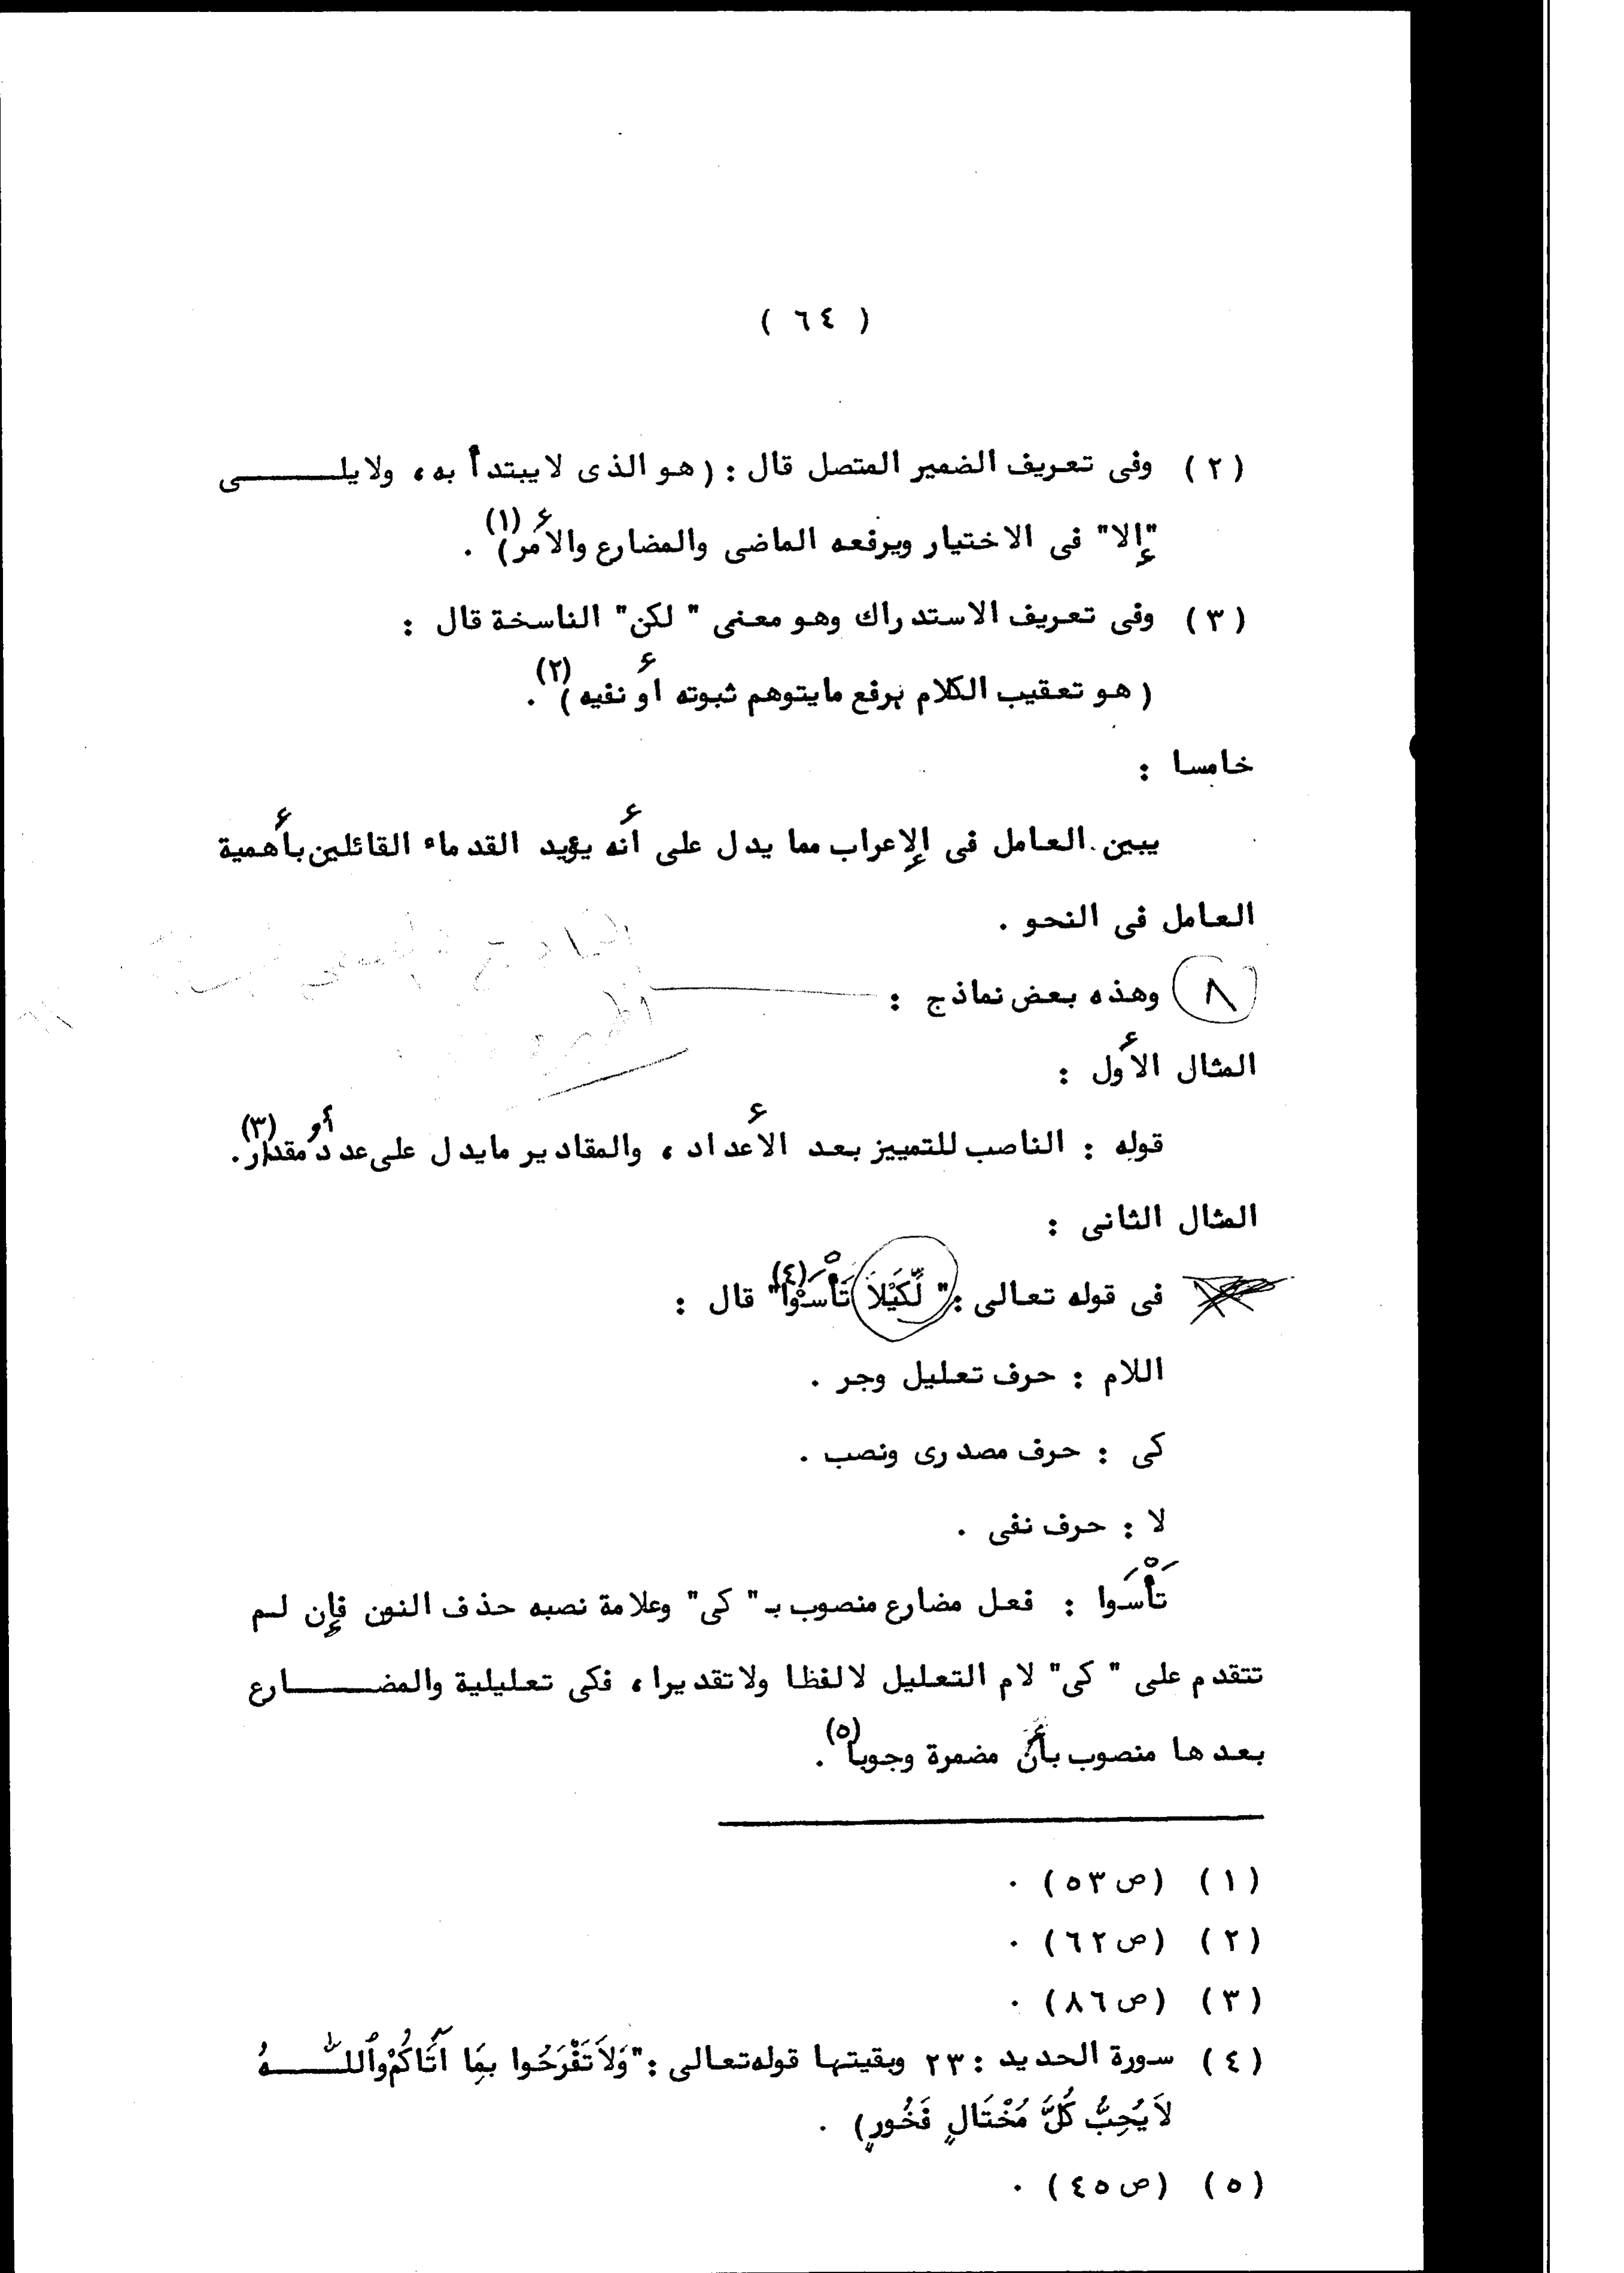 ( ٦٤ )
(٢) وفى تعريف الضمير المتصل قال : ( هو الذى لايبتدأ به ، ولايلــــــى
"إلا" فى الاختيار ويرفعه الماضى والمضارع والأمر) (١) .
(٣) وفى تعريف الاستدراك وهو معنى " لكن" الناسخة قال :
( هو تعقيب الكلام برفع مايتوهم ثبوته أو نفيه ) (٢) .
خامسا :
يبين العامل فى الإعراب مما يدل على أنه يؤيد القدماء القائلين بأهمية
العامل فى النحو .
٨ وهذه بعض نماذج :
المثال الأول :
قوله : الناصب للتمييز بعد الأعداد ، والمقادير مايدل على عدد أو مقدار (٣) .
المثال الثانى :
فى قوله تعالى : " لِّكَيْلاَ تَأْسَوْا" (٤) قال :
اللام : حرف تعليل وجر .
كى : حرف مصدرى ونصب .
لا : حرف نفى .
تَأْسَوا : فعل مضارع منصوب بـ " كى" وعلامة نصبه حذف النون فإن لـم
تتقدم على " كى" لام التعليل لالفظا ولاتقديرا ، فكى تعليلية والمضــــــارع
بعدها منصوب بأن مضمرة وجوبا (٥) .
(١) (ص٥٣) .
(٢) (ص٦٢) .
(٣) (ص٨٦) .
(٤) سورة الحديد : ٢٣ وبقيتها قوله تعالى : "وَلاَ تَفْرَحُوا بِمَا آتَاكُمْ وَٱللَّـــــهُ
لاَ يُحِبُّ كُلَّ مُخْتَالٍ فَخُورٍ) .
(٥) (ص٤٥) .